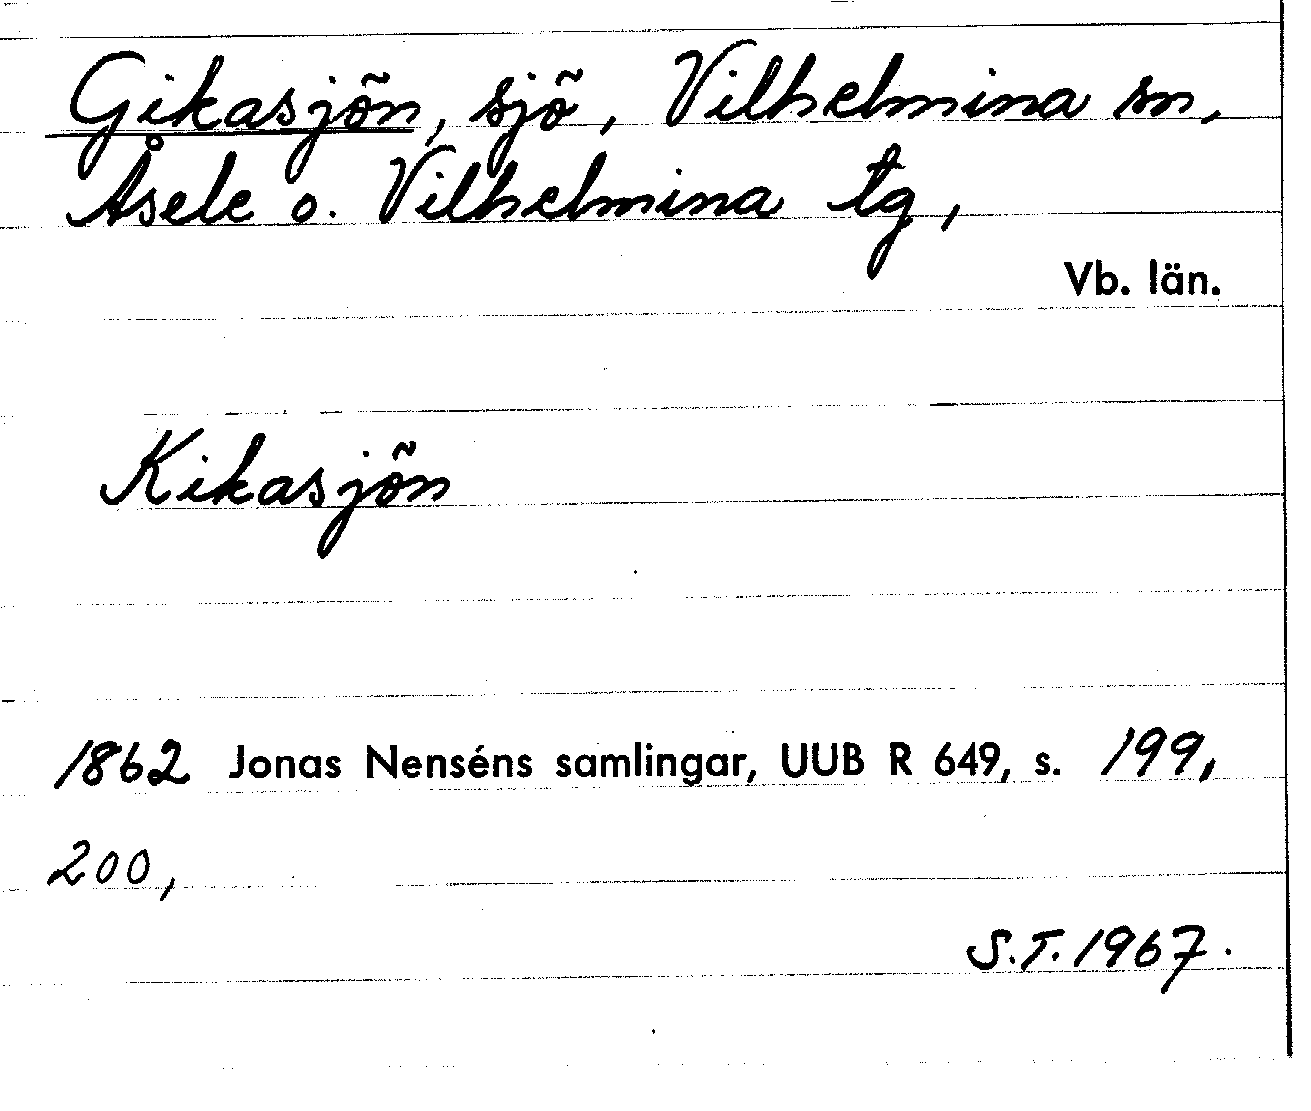 Gikasjön, sjö, Vilhelmina sn,
Åsele o. Vilhelmina tg,
Vb. län.
Kikasjön
1862 Jonas Nenséns samlingar, UUB R 649, s. 199,
200,
S.T. 1967.